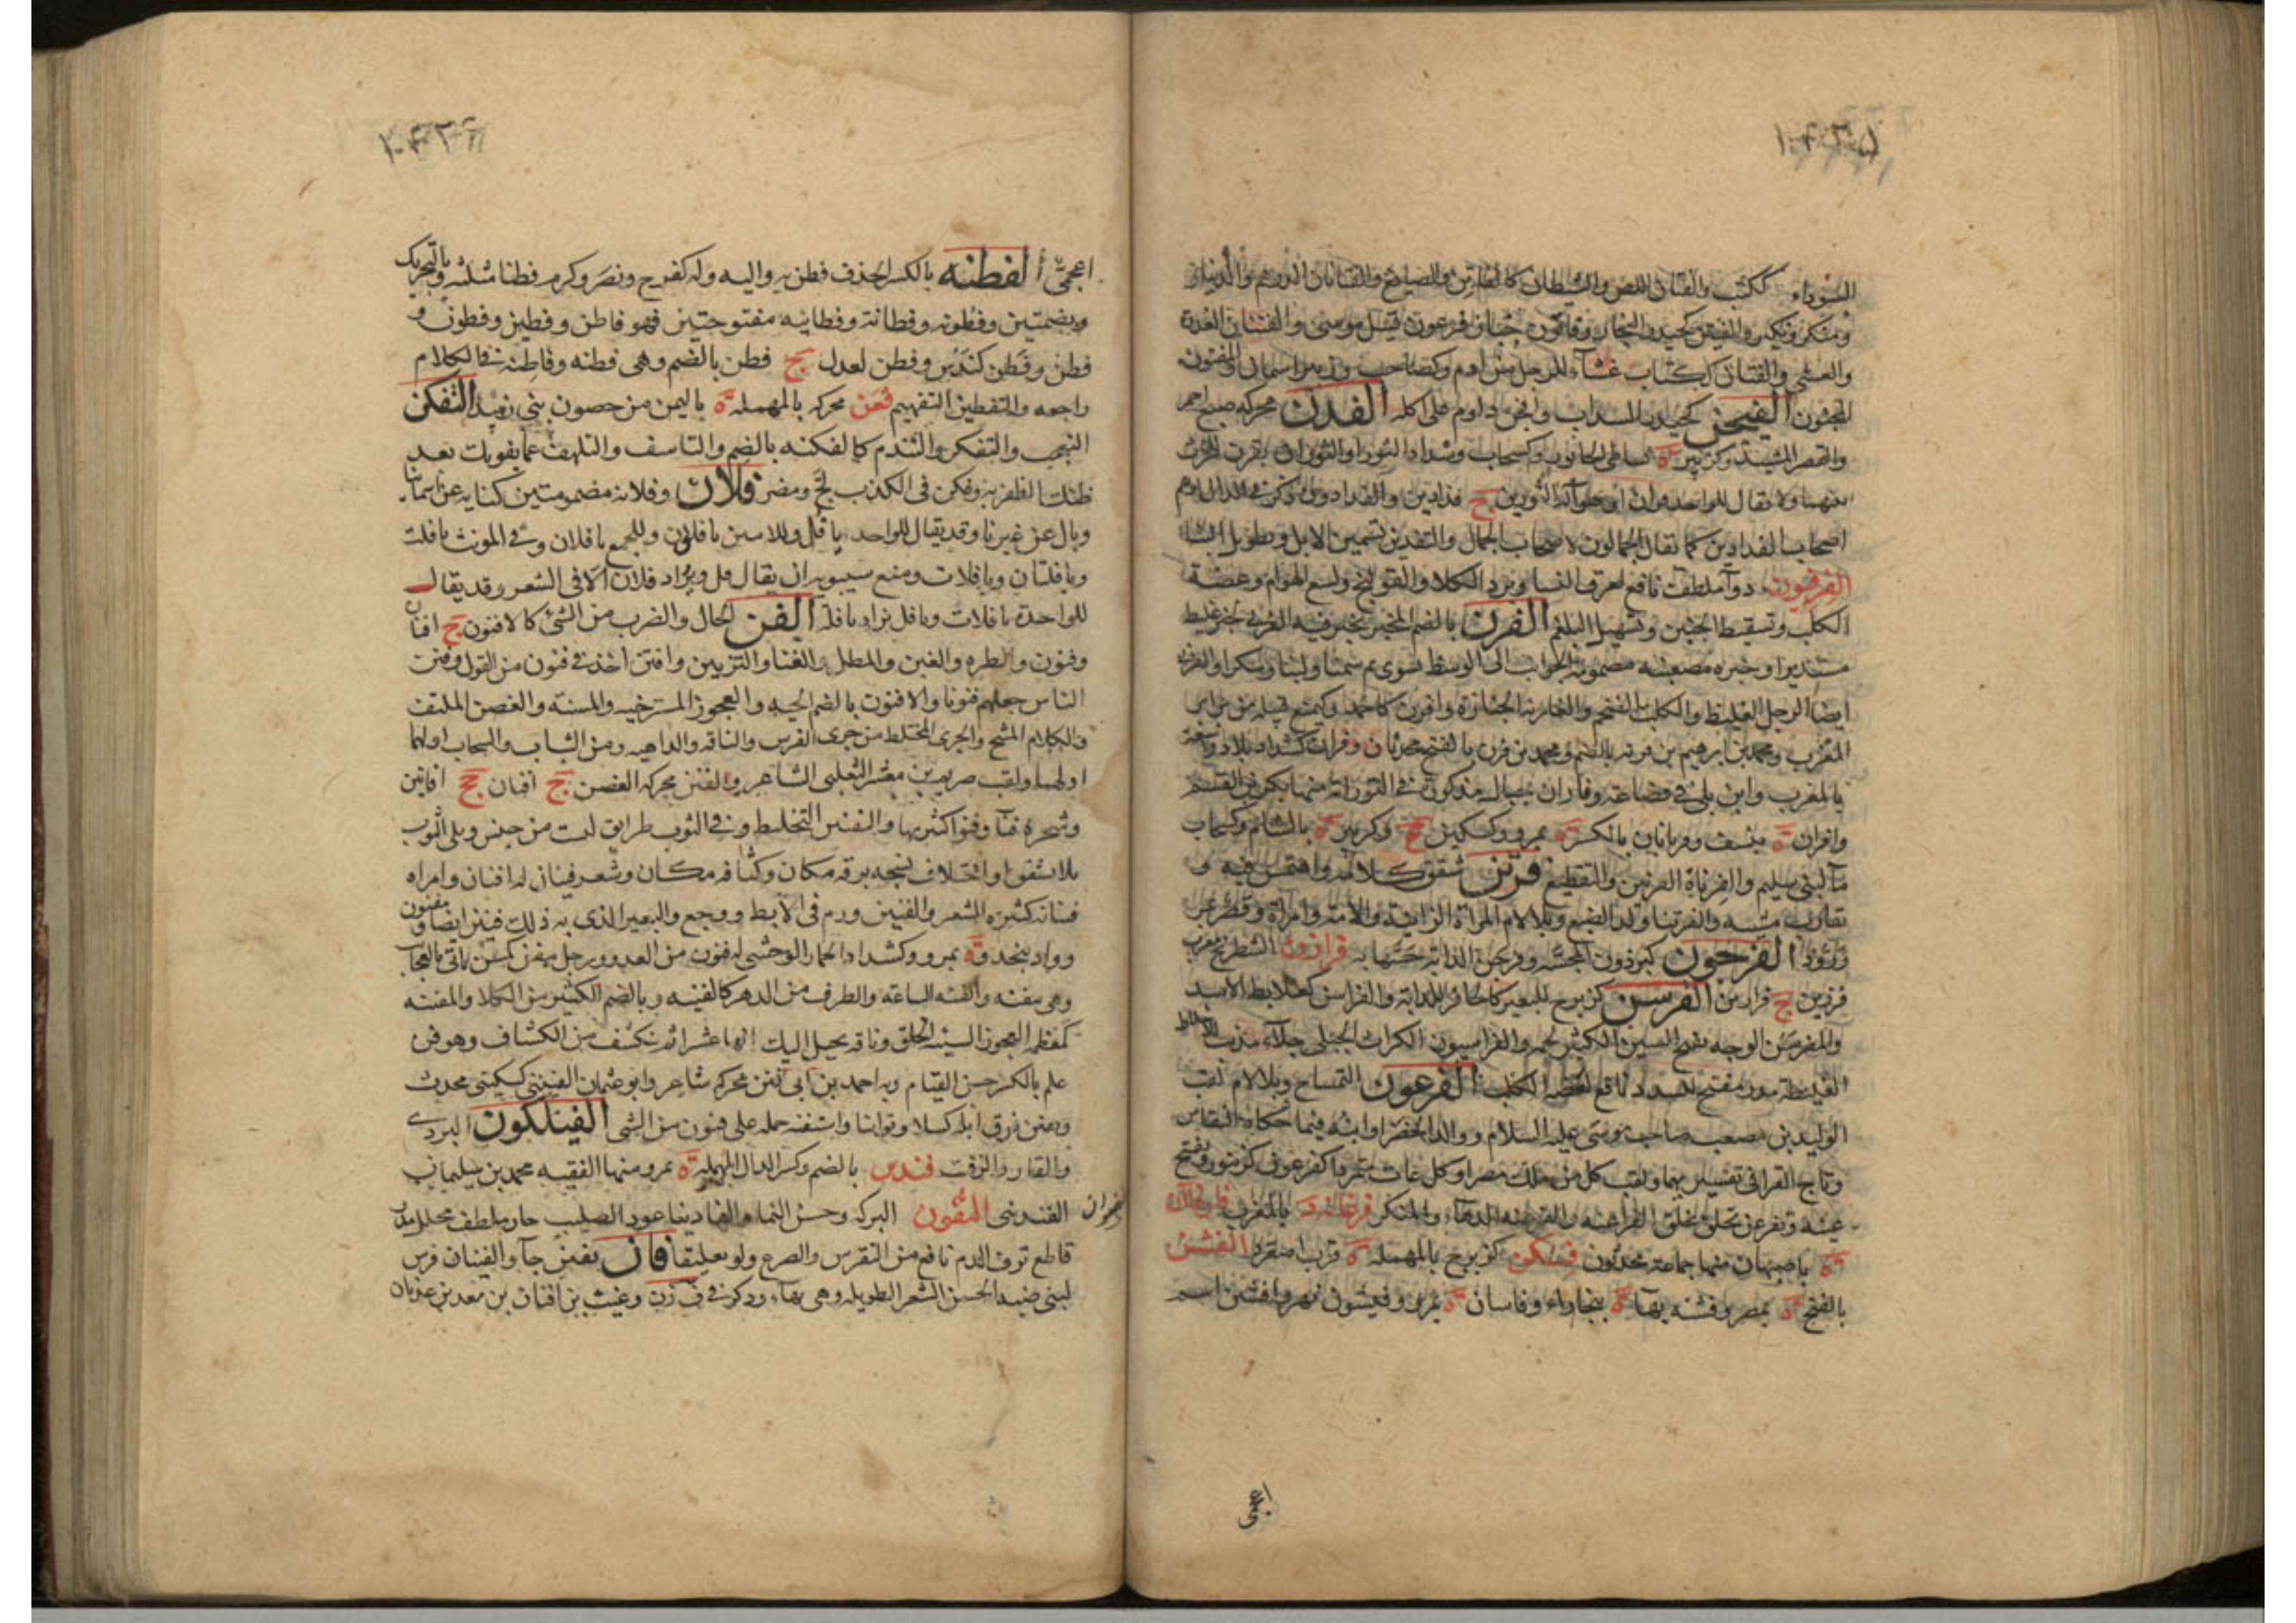 السوداء ككتب والفتان اللص والشيطان كالفاتن والصايغ والفتانان الدرهم والدينار
ومنكر ونكير والفيتن كحيدر النجار وفاتون خباز فرعون قتيل موسى والفتنان الغدوة
والعشى والفتان ككتاب غشاء للرحل من ادم وكصاحب وزبير اسمان والمفتون
المجنون الفيجن كحيدر السداب وافجن داوم على اكله الفدن محركه صبغ احمر
والقصر المشيد وكزبير ة بشاطى الخابور وكسحاب وشداد الثور او الثوران يقرن للحرث
بينهما ولا يقال للواحد فدان او هو آلة الثورين ج فدادين والفدادون ذكر فى الدال وهم
اصحاب الفدادين كما يقال الجمالون لاصحاب الجمال والتفدين تسمين الابل وتطويل البناء
الفرفيون دوآ ملطف نافع لعرق النسا وبرد الكلا والقولنج ولسع الهوام وعضة
الكلب وتسقيط الجنين وتسهيل البلغم الفرن بالضم المخبز يخبز فيه الفرنى خبز غليظ
مستدير او خبزه مصعنبه مضمومة الجوانب الى الوسط تشوى ثم سمنا ولبنا وسكرا والفرنى
ايضا الرجل الغليظ والكلب الضخم والفارنة الخبازة وافرن كاحمد وكيمنع قبيله من برابر
المغرب ومحمد بن ابرهيم بن فرنه بالضم ومحمد بن فرن بالفتح محدثان وفران كشداد بلاد واسعة
بالمغرب وابن بلى فى قضاعة وفاران جبال مذكورة فى التوراة منها بكر بن القسم
وافران ة بنسف وفريانان بالكسر ة بمرو وكسكين ع وكزبير ة بالشام وكسحاب
مآ لبنى سليم والفرناة الفرنين والتقطيع فرتن شقق كلامه واهتمس فيه و
تقارب مشيه والفرتنا ولد الضبع وبلا لام المراة الزانية والامة وامراة وقصر عن
ورود الفرجون كبرذون المجسه وفرجن الدابه حسها به فرازن الشطرنج معرب
فرزين ج فرازين الفرسن كزبرج للبعير كالحافر للدابة والفراسن كعلابط الاسد
والمفرسن الوجه بفتح السين الكثير لحمه والفراسيون الكراث الجبلى جلاء مذيب للاخلاط
الغليظة مدر مفتح للسدد نافع لعضة الكلب الفرعون التمساح وبلا لام لقب
الوليد بن مصعب صاحب موسى عليه السلام ووالد الخضر او ابنه فيما حكاه النقاش
وتاج القرا فى تفسيريهما ولقب كل من ملك مصر او كل عات متمرد كفرعون كزنبور وتفتح
عينه وتفرعن تخلق بخلق الفراعنه والفرعنه الدهاء والنكر فرغانه د بالمغرب
ة باصبهان منها جماعة محدثون فسكن كزبرج بالمهمله ة قرب اصفرد الفشن
بالفتح ة بمصر وفشنه بهاء ة ببخاراء وفاسان ة بمرو وفيشون نهر وافشين اسم
اعجمى
اعجمىّ الفطنه بالكسر الحذق فطن به واليه وله كفرح ونصر وكرم فطنا مثلثه وبالتحريك
وبضمتين وفطونه وفطانة وفطانيه مفتوحتين فهو فاطن وفطين وفطون و
فطن وفطن كندس وفطن لعدل ج فطن بالضم وهى فطنه وفاطنه فى الكلام
راجعه والتفطين التفهيم فعن محركه بالمهمله ة باليمن من حصون بنى زبيد التفكن
التعجب والتفكر والتندم كالفكنه بالضم والتاسف والتلهف عما يفوتك بعد
ظنك الظفر به وفكن فى الكذب لج ومضى فلان وفلانه مضمومتين كنايه عن اسمائنا
وبال عن غيرنا وقد يقال للواحد يا فل وللاثنين يا فلان وللجمع يا فلان وفى المونث يا فلت
ويا فلتان ويا فلات ومنع سيبويه ان يقال فل ويراد فلان الا فى الشعر وقد يقال
للواحدة يا فلات ويا فل يراد يا فلة الفن الحال والضرب من الشئ كالافنون ج افنان
وفنون والطرد والغبن والمطل والعنا والتزيين وافتن اخذ فى فنون من القول وفنن
الناس جعلهم فنونا والافنون بالضم الحيه والعجوز المسترخيه والمسنه والغصن الملتف
والكلام المثبج والجرى المختلط من جرى الفرس والناقه والداهيه ومن الشباب والسحاب اولهما
اولهما ولقب صريم بن معشر التغلبى الشاعر والفنن محركه الغصن ج افنان جج افانين
وشجرة فنآ وفنوا كثيرتها والتفنين التخليط وفى الثوب طرايق ليست من جنس وبلى الثوب
بلا تشقق او اختلاف نسجه برقه مكان وكثافه مكان وشعر فينان له افنان وامراه
فينانه كثيره الشعر والفنين ورم فى الابط ووجع والبعير الذى به ذلك فنين ايضا ومفنون
وواد بنجد وة بمرو وكشداد الحمار الوحشى له فنون من العدو ورجل مفن كمسن ياتى بالعجايب
وهى مفنه والفنه الساعه والطرف من الدهر كالفينه وبالضم الكثير من الكلا والمفننه
كمعظمه العجوز السيئة الخلق وناقه يخيل اليك انها عشرا ثم تنكشف من الكشاف وهو فن
علم بالكسر حسن القيام به واحمد بن ابى فنن محركه شاعر وابو عثمان الفنينى كسكينى محدث
وفنن فرق ابله كسلا وتوانيا واستفنه حمله على فنون من الشى الفيلكون البردى
والقار والزفت فندين بالضم وكسر الدال المهمله ة بمرو منها الفقيه محمد بن سليمان
الفندينى التفون البركه وحسن النما والفاوانيا عود الصليب حار ملطف محلل مدر
قاطع نزف الدم نافع من النقرس والصرع ولو تعليقا فان يفين جآ والفينان فرس
لبنى ضبه الحسن الشعر الطويله وهى بهاء وذكر فى ف ن ن وغيث بن افنان بن معد بن عدنان